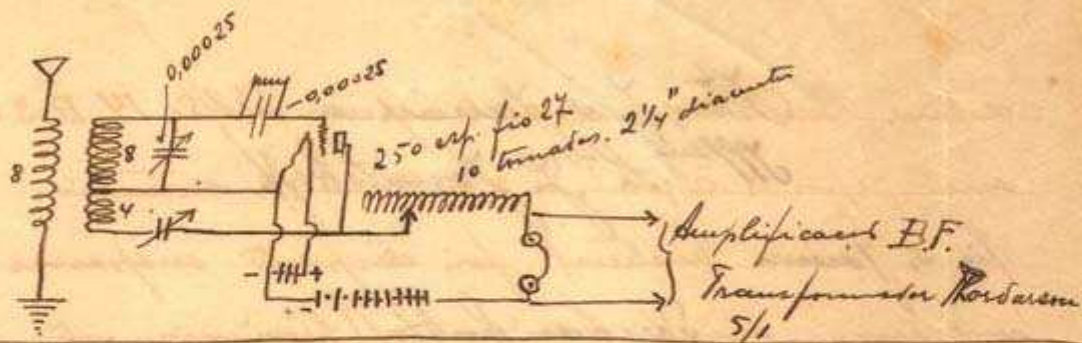 0,00025
0,00025
250 esp. fio 27
10 tomadas. 2 1/4" diametro
8
8
4
- +
-
Amplificacion B.F.
Transformador Thordarson
5/1